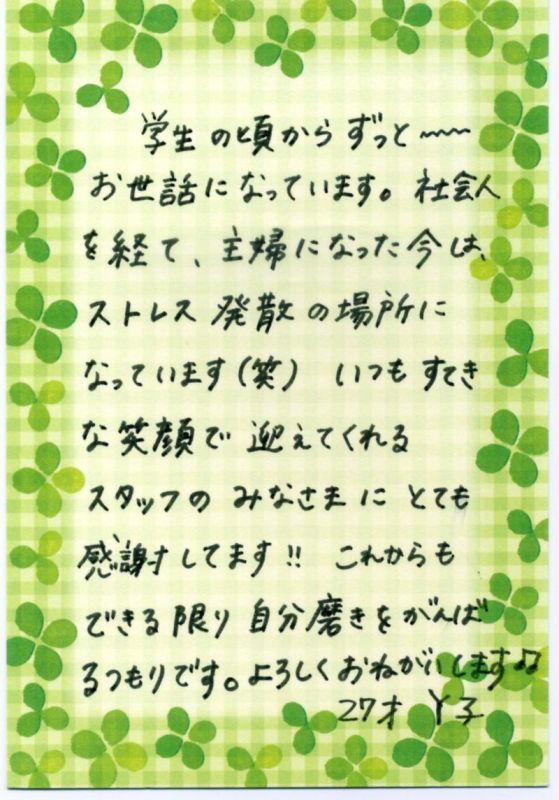 学生の頃からずっと〜〜
お世話になっています。社会人
を経て、主婦になった今は、
ストレス発散の場所に
なっています(笑) いつもすてき
な笑顔で迎えてくれる
スタッフのみなさまにとても
感謝してます!! これからも
できる限り自分磨きをがんば
るつもりです。よろしくおねがいします♫
27才 Y子